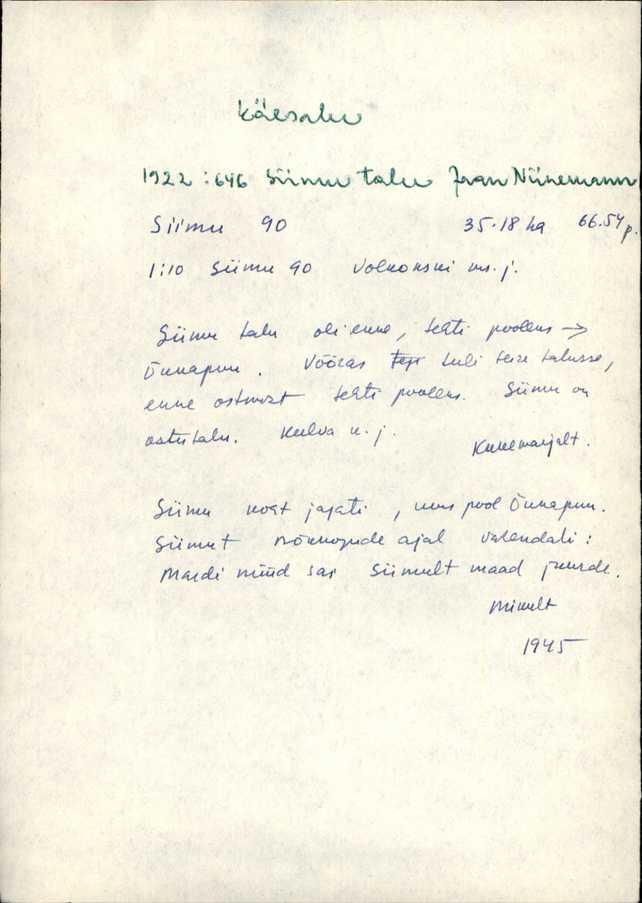 Käesalu
1922 : 646 Siimu talu Jaan Niinemann
Siimu 90 35.18 ha 66.54 p.
1:10 Siimu 90 Volkonski ms. j.
Siimu talu oli enne, tehti pooleks →
Õunapuu. Võõras tuli teise talusse,
enne ostmist tehti pooleks. Siimu on
ostutalu. Kulva k. j.
Kukemarjalt.
Siimu koht jagati, uus pool Õunapuu.
Siimut nõukogude ajal vähendati :
Mardi nüüd sai Siimult maad juurde.
Mimult
1945